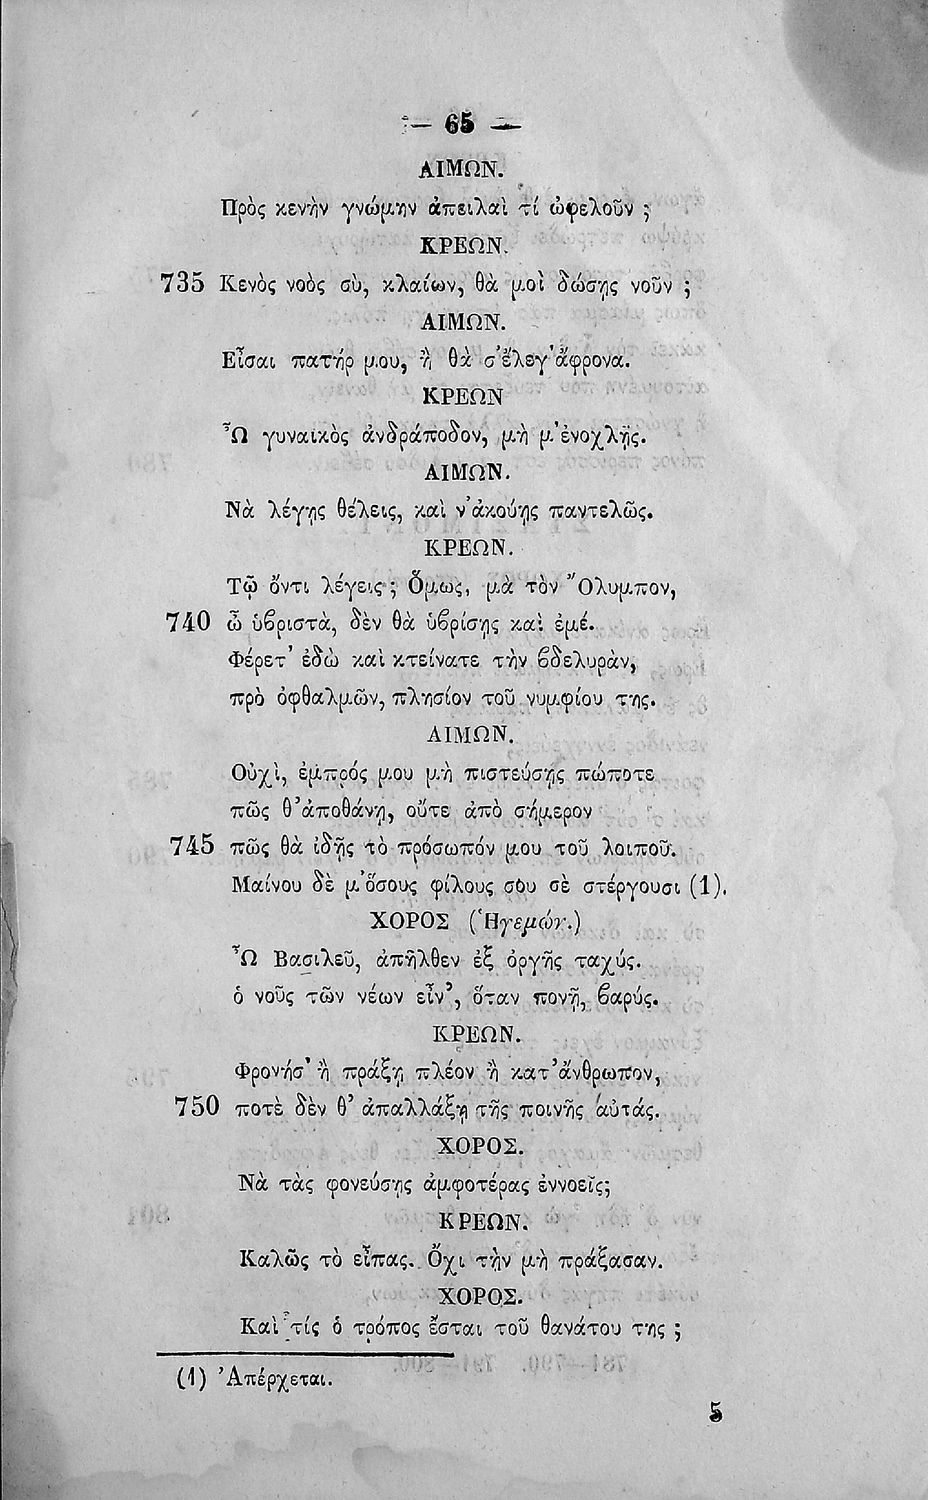 — 65 —
ΑΙΜΩΝ.
Πρὸς κενὴν γνώμην ἀπειλαὶ τί ὠφελοῦν ;
ΚΡΕΩΝ.
735 Κενὸς νοὸς σὺ, κλαίων, θὰ μοὶ δώσῃς νοῦν ;
ΑΙΜΩΝ.
Εἶσαι πατήρ μου, ἢ θὰ σ᾿ἔλεγ᾿ἄφρονα.
ΚΡΕΩΝ
Ὦ γυναικὸς ἀνδράποδον, μὴ μ᾿ἐνοχλῇς.
ΑΙΜΩΝ.
Νὰ λέγῃς θέλεις, καὶ ν᾿ἀκούῃς παντελῶς.
ΚΡΕΩΝ.
Τῷ ὄντι λέγεις ; Ὅμως, μὰ τὸν Ὄλυμπον,
740 ὦ ὑβριστὰ, δὲν θὰ ὑβρίσῃς καὶ ἐμέ.
Φέρετ᾿ ἐδὼ καὶ κτείνατε τὴν βδελυρὰν,
πρὸ ὀφθαλμῶν, πλησίον τοῦ νυμφίου της.
ΑΙΜΩΝ.
Οὐχὶ, ἐμπρός μου μὴ πιστεύσῃς πώποτε
πῶς θ᾿ἀποθάνῃ, οὔτε ἀπὸ σήμερον
745 πῶς θὰ ἰδῇς τὸ πρόσωπόν μου τοῦ λοιποῦ.
Μαίνου δὲ μ᾿ὅσους φίλους σου σὲ στέργουσι (1).
ΧΟΡΟΣ (Ἡγεμών.)
Ὦ Βασιλεῦ, ἀπῆλθεν ἐξ ὀργῆς ταχύς.
ὁ νοῦς τῶν νέων εἶν᾿, ὅταν πονῇ, βαρύς.
ΚΡΕΩΝ.
Φρονήσ᾿ ἢ πράξῃ πλέον ἢ κατ᾿ἄνθρωπον,
750 ποτὲ δὲν θ᾿ ἀπαλλάξῃ τῆς ποινῆς αὐτάς.
ΧΟΡΟΣ.
Νὰ τὰς φονεύσῃς ἀμφοτέρας ἐννοεῖς;
ΚΡΕΩΝ.
Καλῶς τὸ εἶπας. Ὄχι τὴν μὴ πράξασαν.
ΧΟΡΟΣ.
Καὶ τίς ὁ τρόπος ἔσται τοῦ θανάτου της ;
(1) Ἀπέρχεται.
5